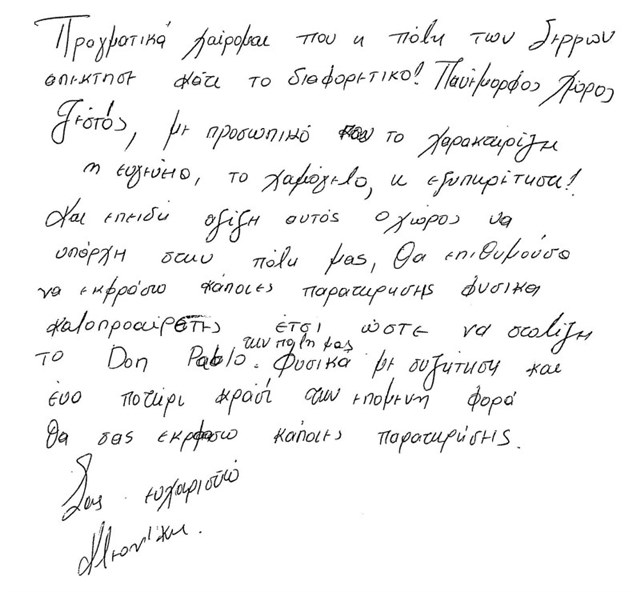 Πραγματικά χαίρομαι που η πόλη των Σερρων
απεκτησε κατι το διαφορετικο! Πανεμορφος χώρος
Ζεστός, με προσωπικό που το χαρακτιρίζη
η ευγένια, το χαμόγελο, κ εξυπιρέτηση!
Και επειδή αξίζη αυτός ο χώρος να
υπάρχη στην πόλη μας, θα επιθυμούσα
να εκφράσω κάποιες παρατηρησης φυσικα
καλοπροαιρετης έτσι ώστε να σταθιζη
το Don Pablo στην πόλη μας. Φυσικά με συζήτηση και
ενα ποτήρι κρασί την επομενη φορά
θα σας εκφρασω κάποιες παρατηρήσης.
Σας ευχαριστώ